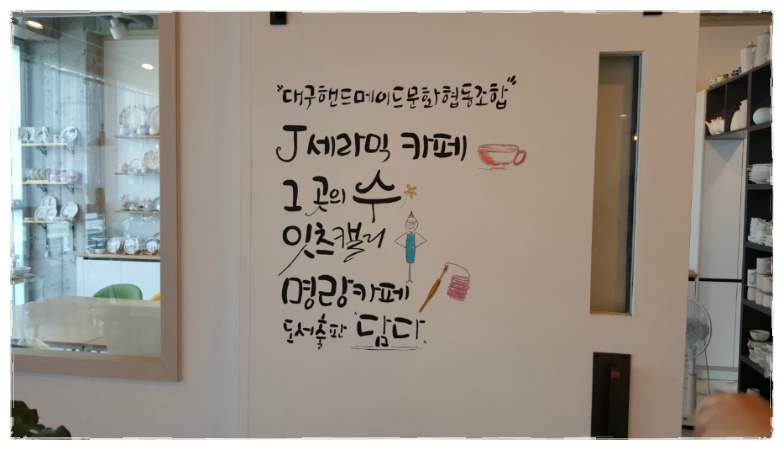 "대구핸드메이드문화협동조합"
J 세라믹 카페
그 곳의 수
잇츠캘리
명랑카페
도서출판 '담다.